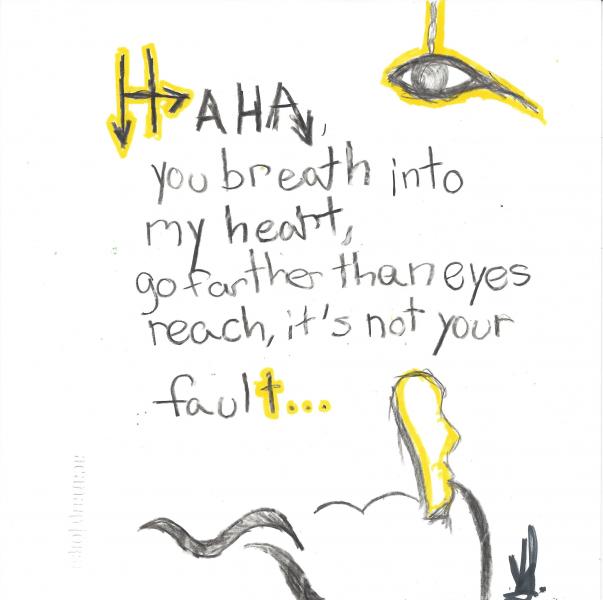 HAHA,
you breath into
my heart,
go farther than eyes
reach, it's not your
fault...